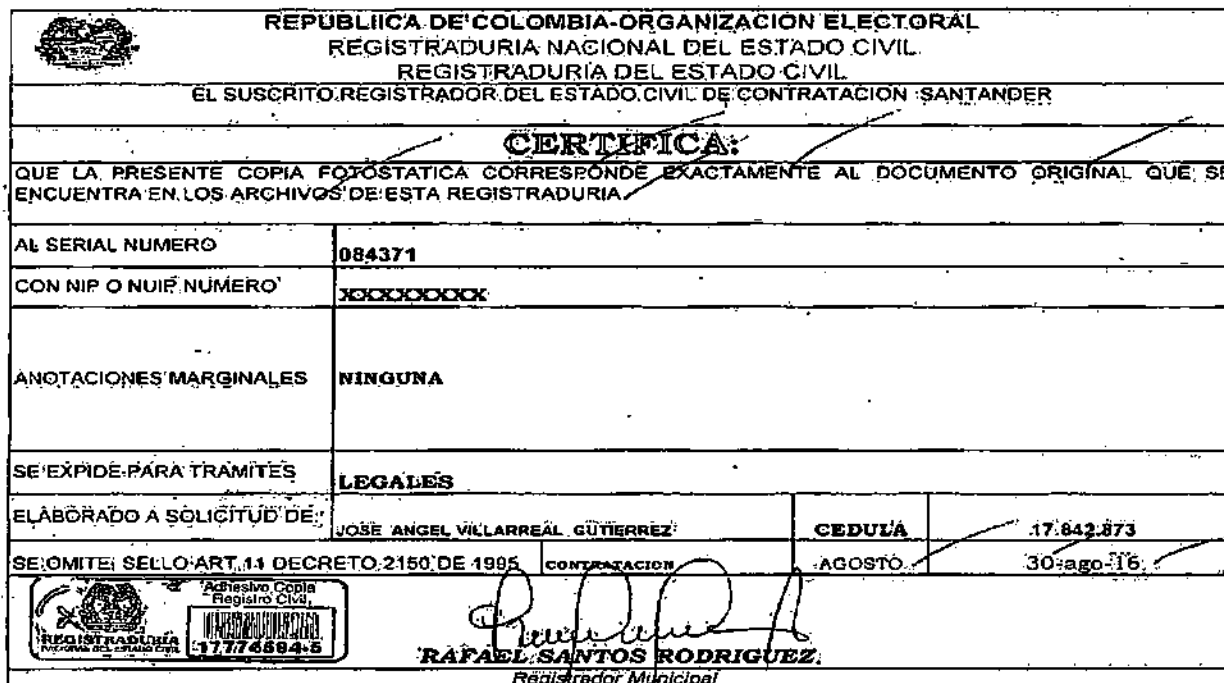 REPÚBLIICA DE COLOMBIA-ORGANIZACION ELECTORAL
REGISTRADURIA NACIONAL DEL ESTADO CIVIL
REGISTRADURIA DEL ESTADO CIVIL
EL SUSCRITO REGISTRADOR DEL ESTADO CIVIL DE CONTRATACION SANTANDER
CERTIFICA:
QUE LA PRESENTE COPIA FOTOSTATICA CORRESPONDE EXACTAMENTE AL DOCUMENTO ORIGINAL QUE SE
ENCUENTRA EN LOS ARCHIVOS DE ESTA REGISTRADURIA
AL SERIAL NUMERO 084371
CON NIP O NUIP NUMERO XXXXXXXXX
ANOTACIONES MARGINALES NINGUNA
SE EXPIDE PARA TRAMITES LEGALES
ELABORADO A SOLICITUD DE: JOSE ANGEL VILLARREAL GUTIERREZ CEDULA 17.842.873
SE OMITE SELLO ART, 11 DECRETO 2150 DE 1995 CONTRATACION AGOSTO 30-ago-16
Adhesivo Copia
Registro Civil
REGISTRADURÍA
NACIONAL DEL ESTADO CIVIL
17776594-5
RAFAEL SANTOS RODRIGUEZ
Registrador Municipal